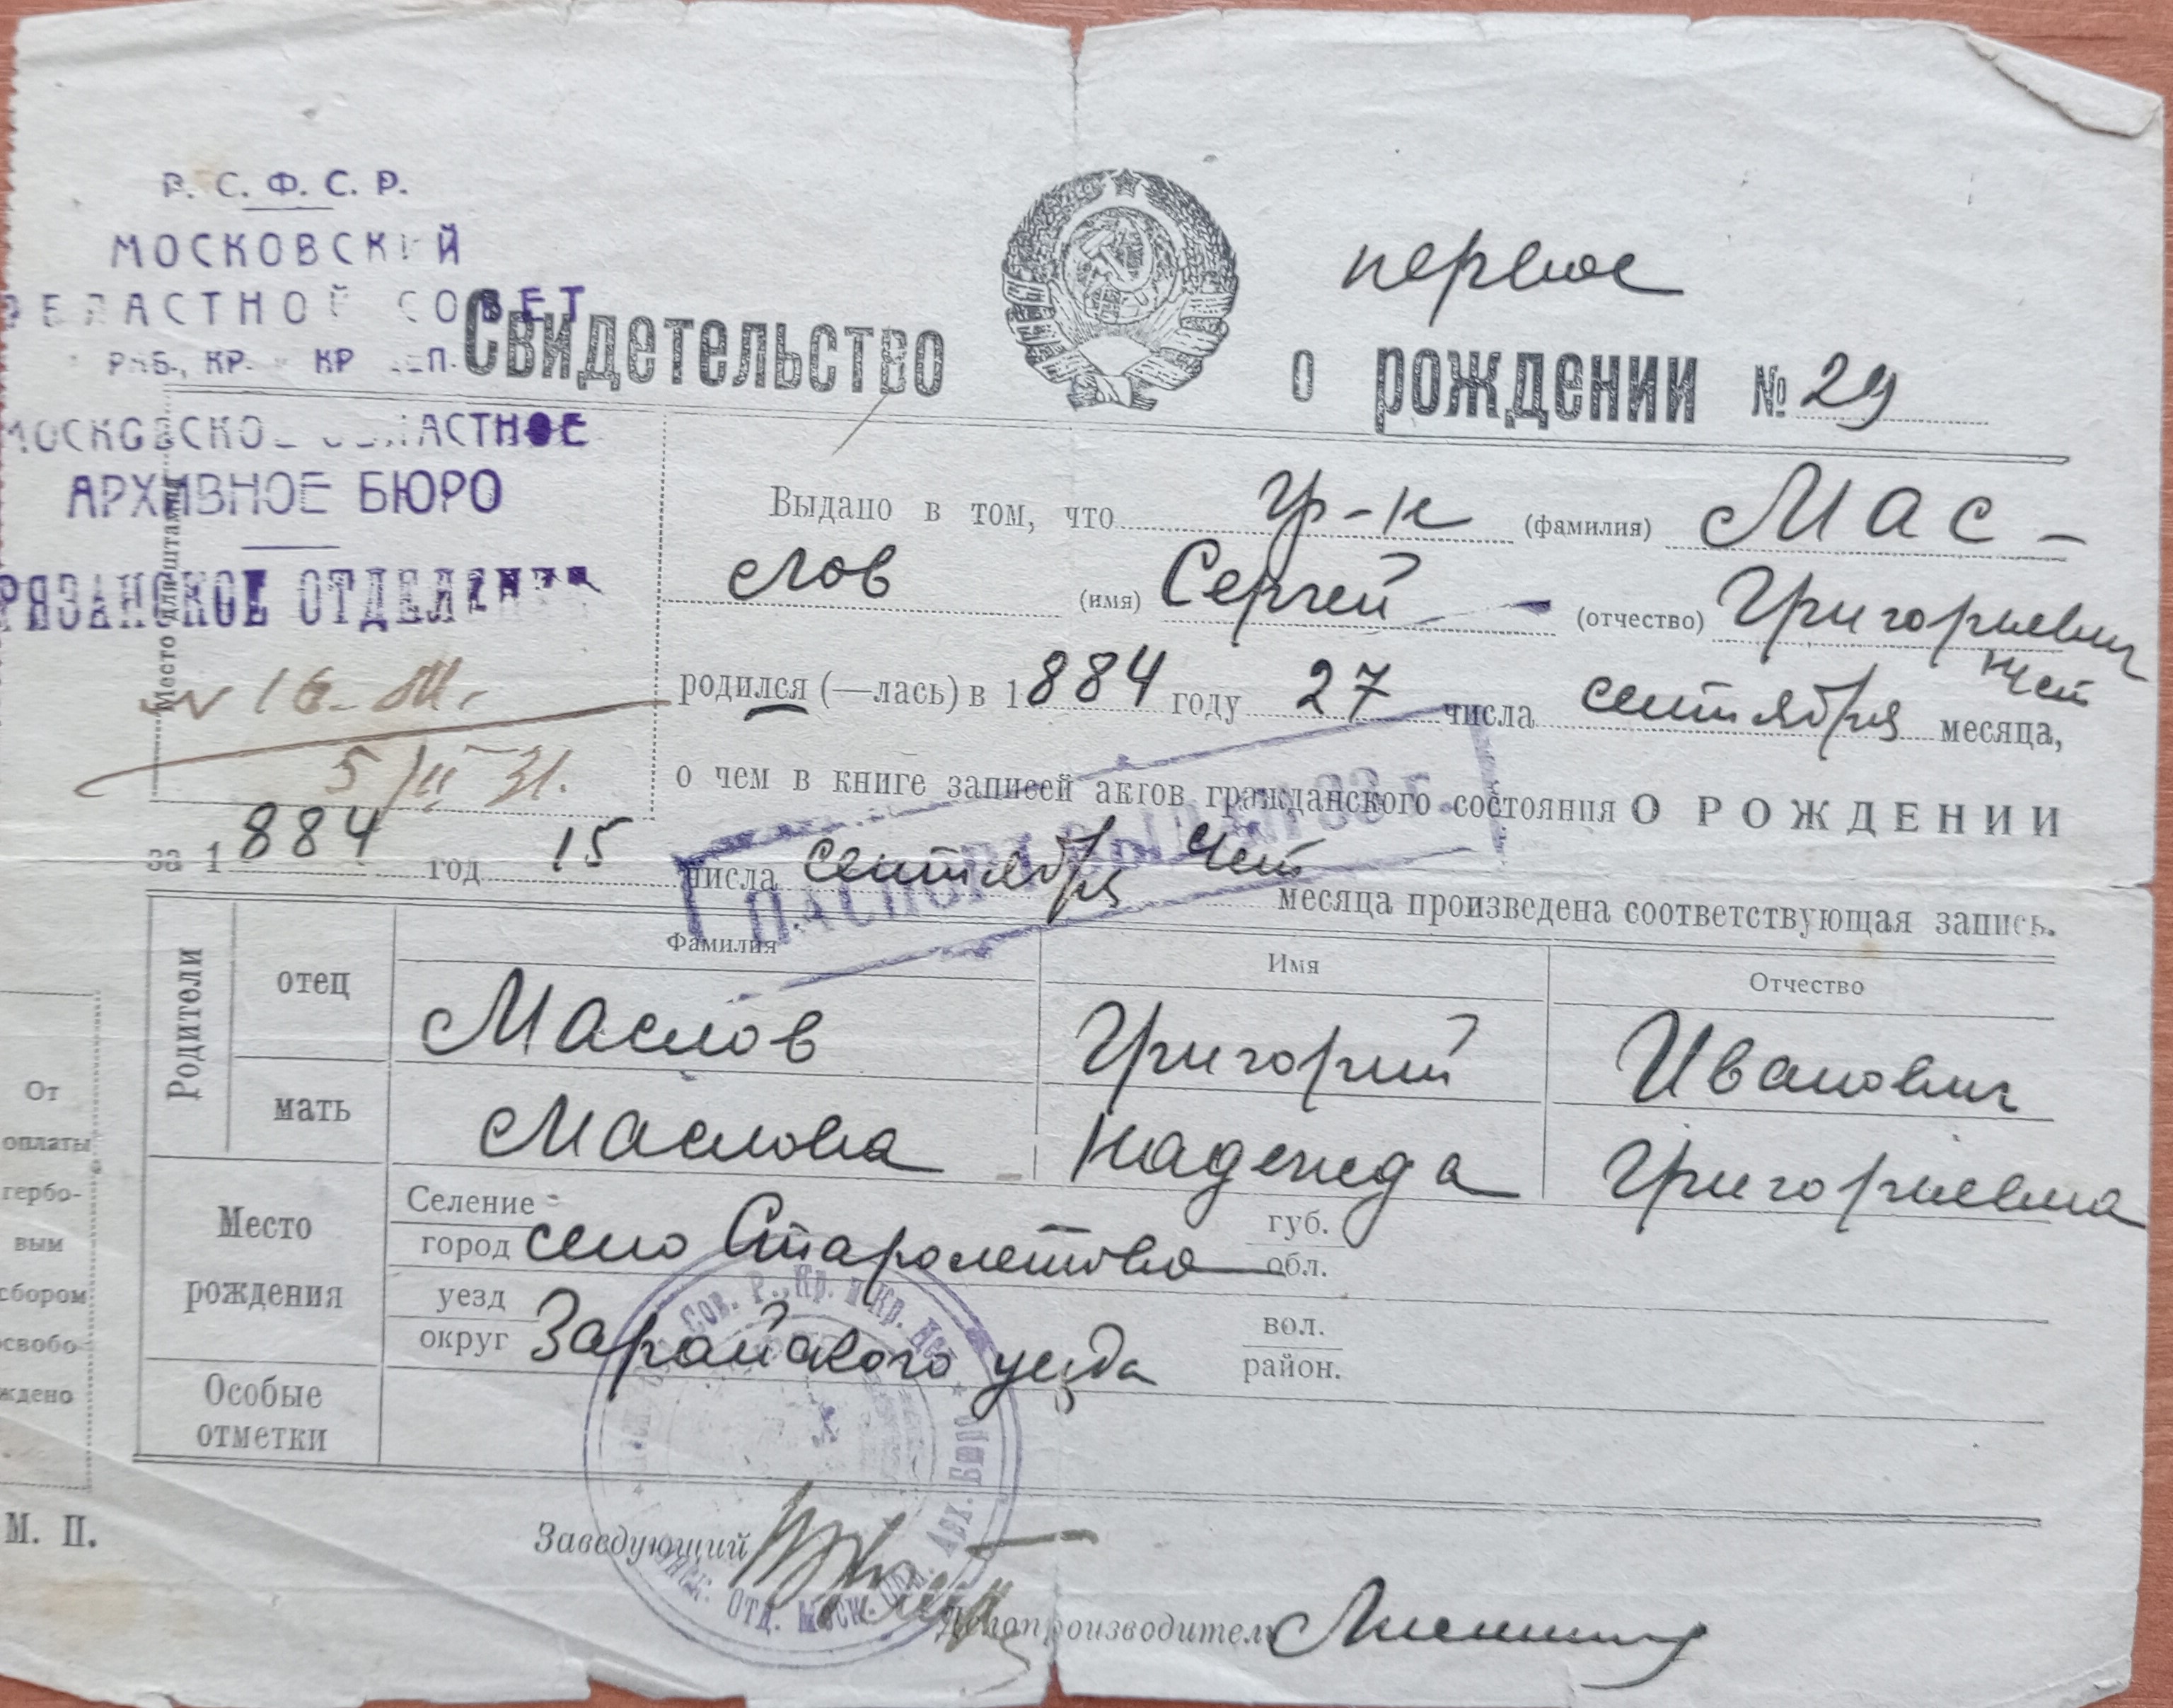 Р. С. Ф. С. Р.
МОСКОВСКИЙ
ОБЛАСТНОЙ СОВЕТ
РАБ., КР. И КР ДЕП.
МОСКОВСКОЕ ОБЛАСТНОЕ
АРХИВНОЕ БЮРО
РЯЗАНСКОЕ ОТДЕЛЕНИЕ
Место для штампа
5/II 31.
первое
Свидетельство о рождении № 29
Выдано в том, что гр-н (фамилия) Мас-
лов (имя) Сергей (отчество) Григорьевич
родился (—лась) в 1884 году 27 числа сентября месяца,
о чем в книге записей актов гражданского состояния О РОЖДЕНИИ
за 1884 год 15 числа сентября месяца произведена соответствующая запись.
ПАСПОРТ ВЫДАН 33 г.
Родители
Фамилия Имя Отчество
отец Маслов Григорий Иванович
мать Маслова Надежда Григорьевна
Место рождения
Селение город село Старолетово губ. обл.
уезд округ Зарайского уезда вол. район.
Особые отметки
От
оплаты
гербо-
вым
сбором
освобо-
ждено
М. П.
Сов. Р., Кр. и Кр. Деп.
Отд. Моск. Обл. Арх. Бюро
Заведующий
Делопроизводитель